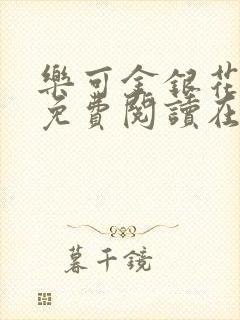 樂可金銀花
免費閱讀在
暮千鏡